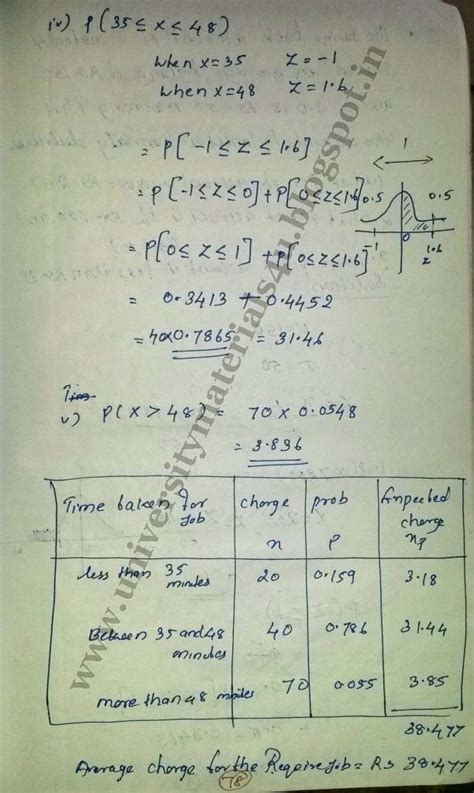 iv) P(35 ≤ x ≤ 48)
when x=35 Z = -1
when x=48 Z = 1.6
= P[-1 ≤ Z ≤ 1.6]
= P[-1 ≤ Z ≤ 0] + P[0 ≤ Z ≤ 1.6]
= P[0 ≤ Z ≤ 1] + P[0 ≤ Z ≤ 1.6]
= 0.3413 + 0.4452
= 40x0.7865 = 31.46
1
0.5 0.5
-1 0 1.6
Z
v) P(x > 48) = 70 x 0.0548
= 3.836
Time taken for Job charge n prob P Expected charge np
less than 35 minutes 20 0.159 3.18
Between 35 and 48 minutes 40 0.786 31.44
more than 48 minutes 70 0.055 3.85
38.477
Average charge for the Require Job = Rs 38.477
78
www.universitymaterials4u.blogspot.in